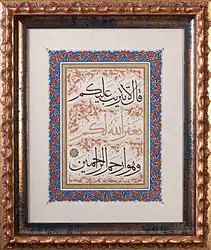 قال لا تثريب عليكم
يغفر الله لكم
وهو ارحم الراحمين